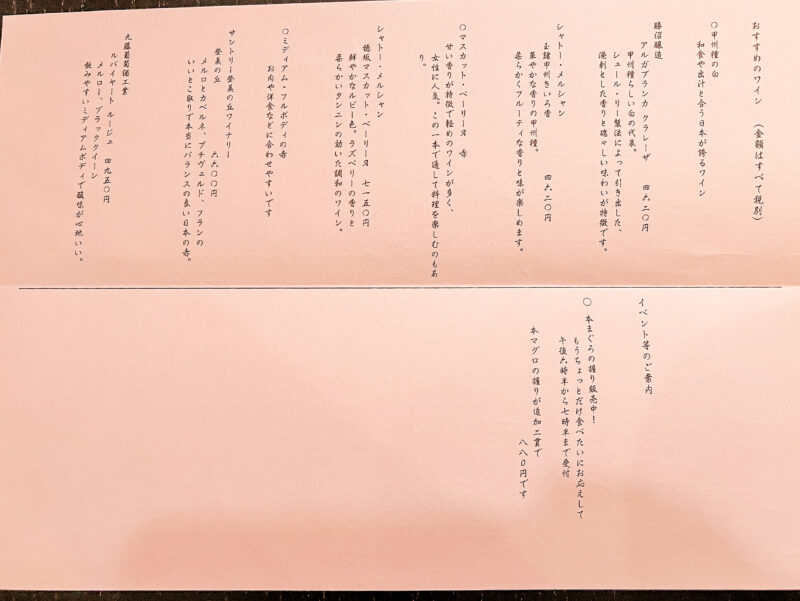 おすすめのワイン　（金額はすべて税別）
〇甲州種の白
和食や出汁と合う日本が誇るワイン
勝沼醸造
アルガブランカ クラレーザ　四六二〇円
甲州種らしい白の代表。
シュール・リー製法によって引き出した、
溌剌とした香りと瑞々しい味わいが特徴です。
シャトー・メルシャン
玉諸甲州きいろ香　四六二〇円
華やかな香りの甲州種。
柔らかくフルーティな香りと味が楽しめます。
〇マスカット・ベーリーA　赤
甘い香りが特徴で軽めのワインが多く、
女性に人気。この一本で通して料理を楽しむのもあ
り。
シャトー・メルシャン
穂坂マスカット・ベーリーA　七一五〇円
鮮やかなルビー色。ラズベリーの香りと
柔らかいタンニンの効いた調和のワイン。
〇ミディアム・フルボディの赤
お肉や洋食などに合わせやすいです
サントリー登美の丘ワイナリー
登美の丘　六六〇〇円
メルロとカベルネ、プチヴェルド、フランの
いいとこ取りで本当にバランスの良い日本の赤。
丸藤葡萄酒工業
ルバイヤート ルージュ　四九五〇円
メルロー、ブラッククイーン
飲みやすいミディアムボディで酸味が心地いい。
イベント等のご案内
〇 本まぐろの握り販売中！
もうちょっとだけ食べたいにお応えして
午後六時半から七時半まで受付
本マグロの握りが追加二貫で
八八〇円です